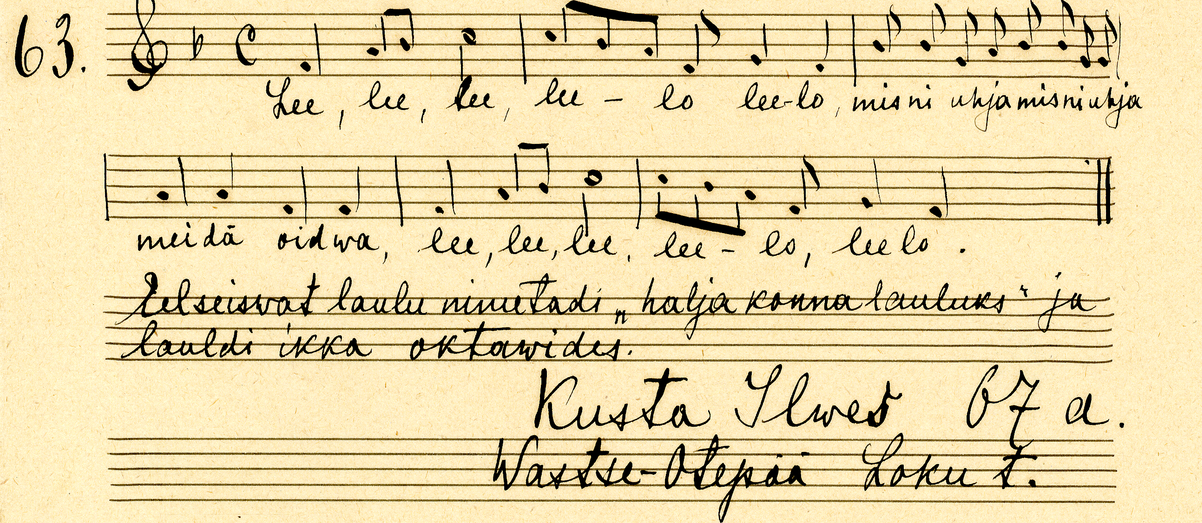 63.
Lee, lee, lee, lee - lo lee-lo, misni uhja misni uhja
meidä oidwa, lee, lee, lee, lee - lo, leelo.
Eelseiswat laulu nimetadi „halja konna lauluks“ ja
lauldi ikka oktawides.
Kusta Ilwes 67 a.
Wastse-Otepää Loku t.